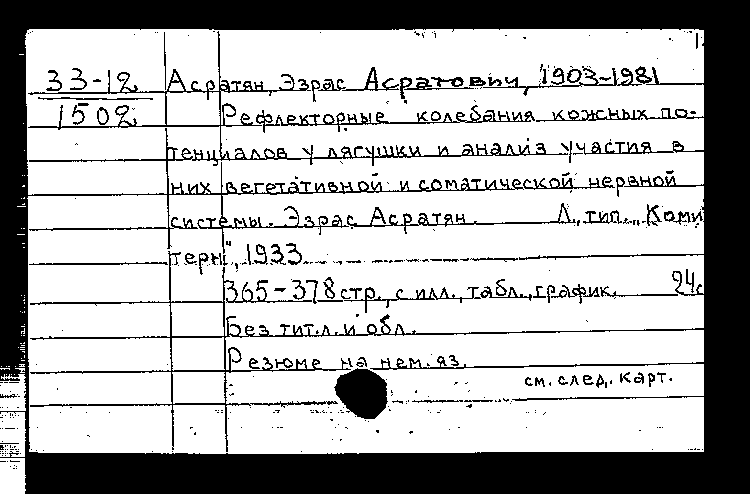 33-12 Асратян, Эзрас Асратович, 1903-1981
1502 Рефлекторные колебания кожных по-
тенциалов у лягушки и анализ участия в
них вегетативной и соматической нервной
системы. Эзрас Асратян. Л., тип. "Коми
терн", 1933
365-378 стр., с илл., табл., график. 24с
Без тит.л. и обл.
Резюме на нем. яз.
см. след. карт.